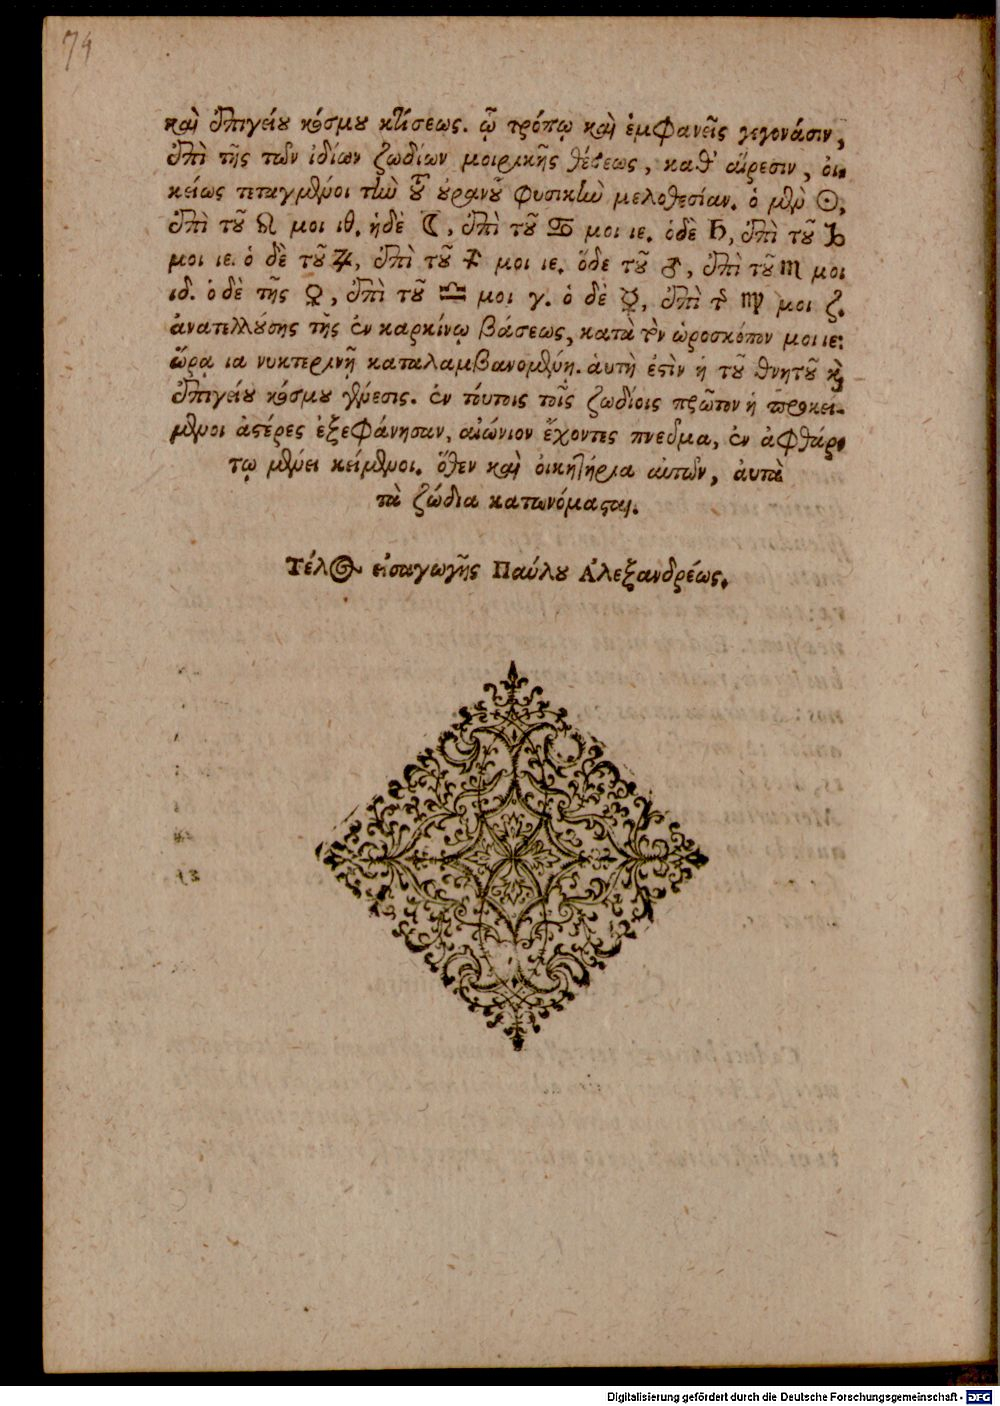 74
καὶ ἐπιγείου κόσμου κτίσεως. ᾧ τρόπῳ καὶ ἐμφανεῖς γεγονάσιν,
ἐπὶ τῆς τῶν ἰδίων ζωδίων μοιρικῆς θέσεως, καθ' αἵρεσιν, οἰ-
κείως τεταγμένοι τὴν τοῦ οὐρανοῦ φυσικὴν μελοθεσίαν. ὁ μὲν ☉,
ἐπὶ τοῦ ♌ μοι ιθ. ἡδὲ ☾, ἐπὶ τοῦ ♋ μοι ιε. ὁδὲ ♄, ἐπὶ τοῦ ♑
μοι ιε. ὁ δὲ τοῦ ♃, ἐπὶ τοῦ ♐ μοι ιε. ὅδε τοῦ ♂, ἐπὶ τοῦ ♏ μοι
ιδ. ὁ δὲ τῆς ♀, ἐπὶ τοῦ ♎ μοι γ. ὁ δὲ ☿, ἐπὶ τ ♍ μοι ζ.
ἀνατελλούσης τῆς ἐν καρκίνῳ βάσεως, κατὰ τὸν ὡροσκόπον μοι ιε:
ὥρᾳ ια νυκτερινῇ καταλαμβανομένη. ἁυτὴ ἐστὶν ἡ τοῦ θνητοῦ καὶ
ἐπιγείου κόσμου γένεσις. ἐν τούτοις τοῖς ζωδίοις πρῶτον ἡ προκεί-
μενοι ἀστέρες ἐξεφάνησαν, αἰώνιον ἔχοντες πνεῦμα, ἐν ἀφθάρ-
τῳ μένει κείμενοι. ὅθεν καὶ οἰκητήρια αὐτῶν, ἀυτὰ
τὰ ζώδια κατωνόμασται.
Τέλος εἰσαγωγῆς Παύλου Ἀλεξανδρέως.
Digitalisierung gefördert durch die Deutsche Forschungsgemeinschaft - DFG